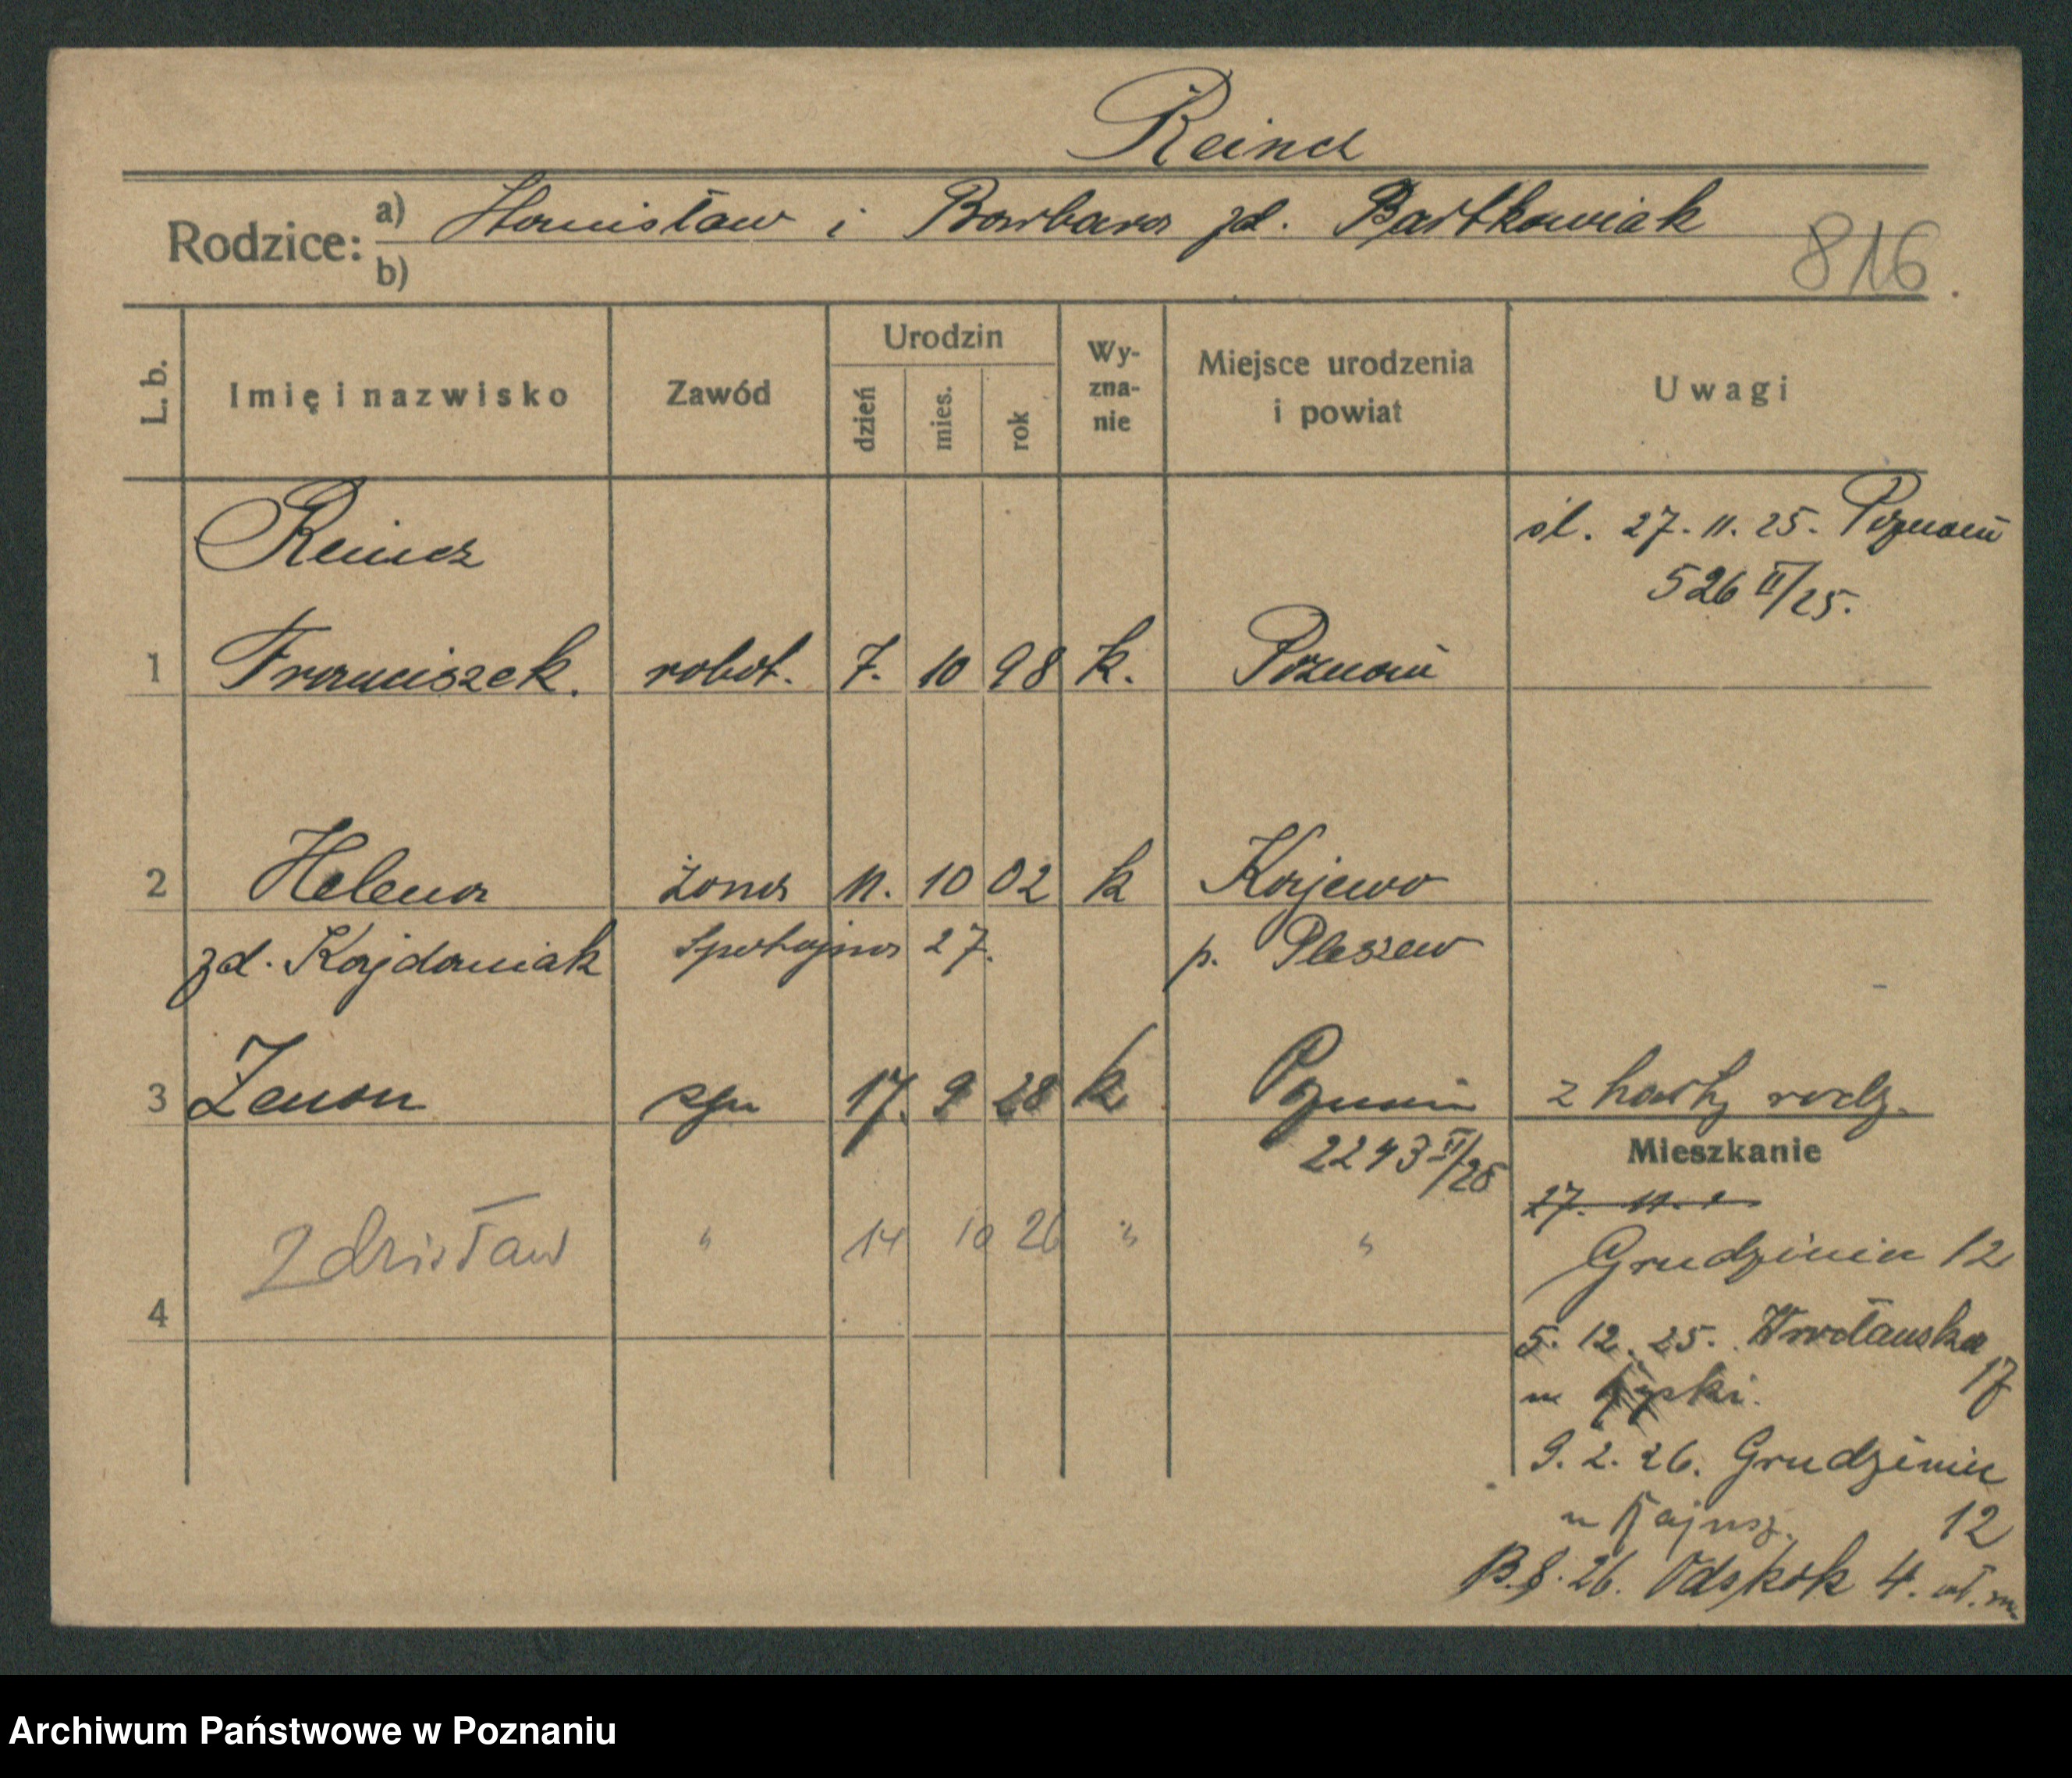 Reincz
Rodzice: a) Stanisław i Barbara zd. Bartkowiak
b)
816
L. b. Imię i nazwisko Zawód Urodzin dzień mies. rok Wy-zna-nie Miejsce urodzenia i powiat Uwagi
Reincz śl. 27. 11. 25. Poznań
526 II/25.
1 Franciszek. robot. 7. 10 98 k. Poznań
2 Helena żona 11. 10 02 k Kajewo
zd. Kajdaniak Spokojna 27. p. Pleszew
3 Zenon syn 17. 9 28 k Poznań z karty rodz.
2243 II/28
Mieszkanie
27. 11.
4 Zdzisław " 14 10 26 " "
Grudzieniec 12
5. 12. 25. Wrocławska 17
u
9. 2. 26. Grudzieniec
u 12
8. 26. Odskok 4. wł. m.
Archiwum Państwowe w Poznaniu